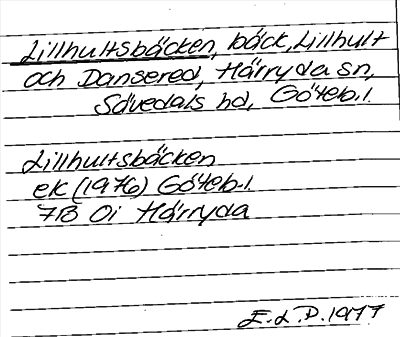 Lillhultsbäcken, bäck, Lillhult
och Dansered, Härryda sn,
Sävedals hd, Göteb.l.
Lillhultsbäcken
ek (1976) Göteb.l.
7B 0i Härryda
E.L.P. 1977